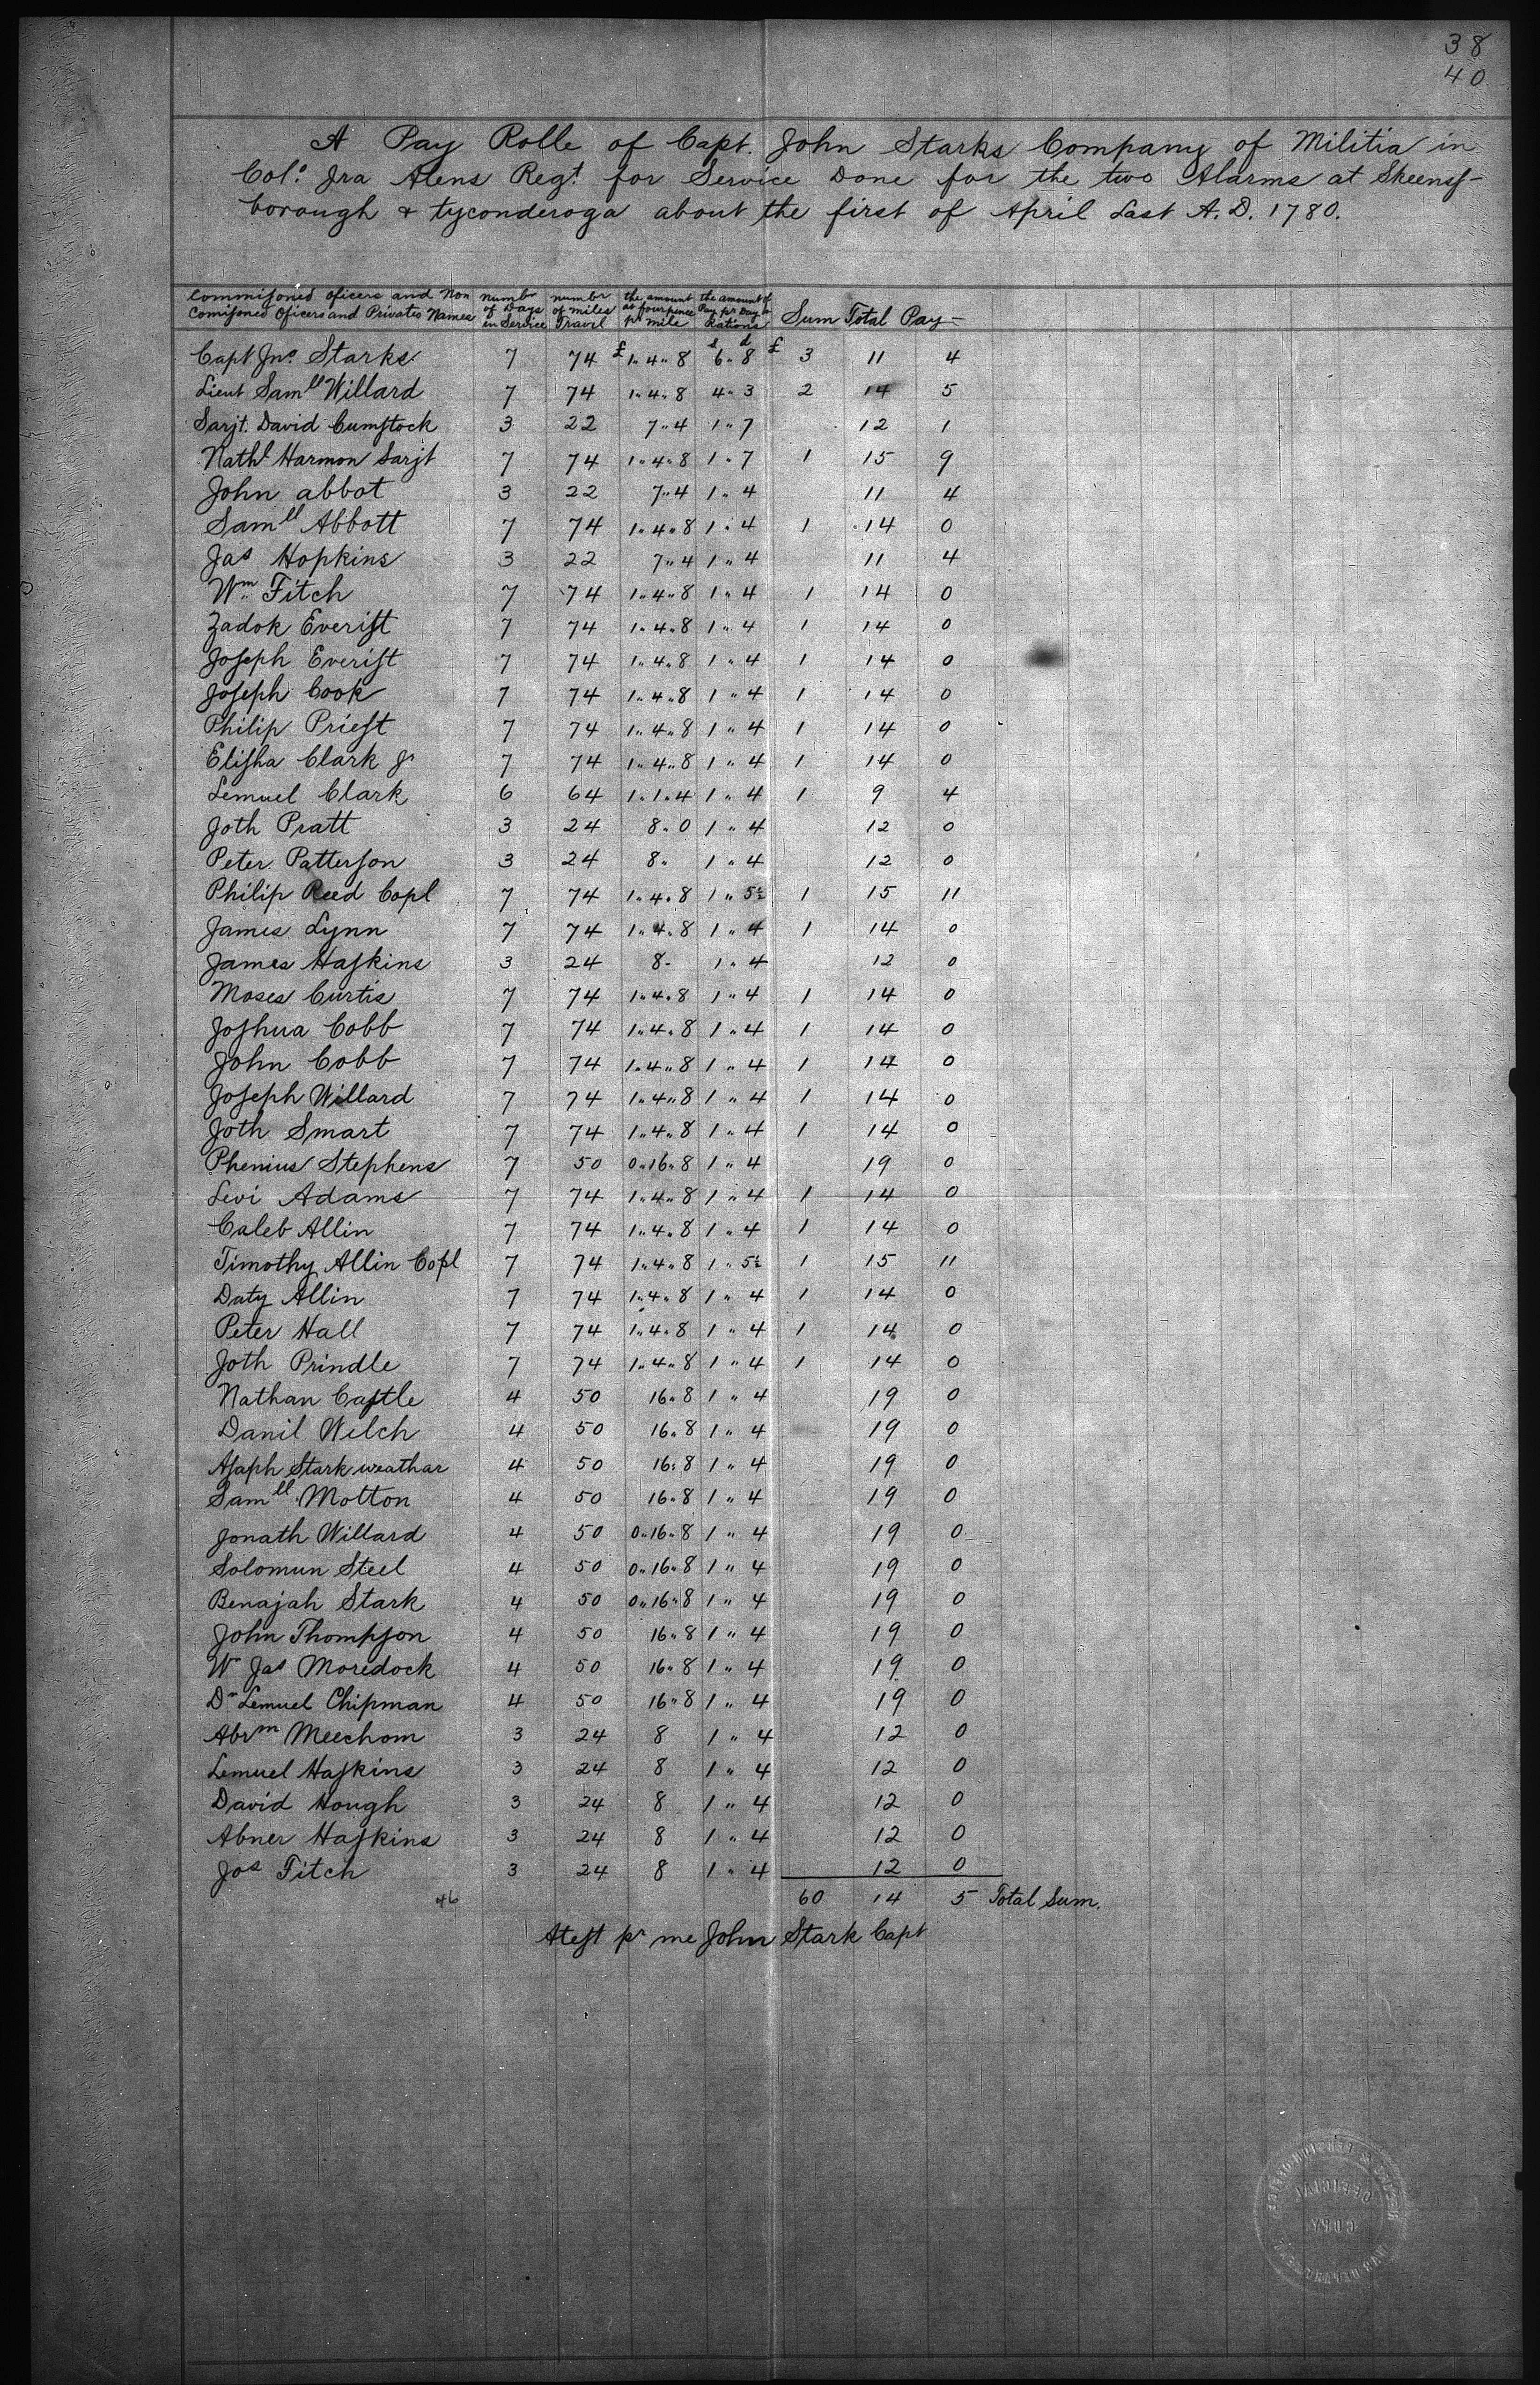 38
40
A Pay Rolle of Capt. John Starks Company of Militia in
Col.o Ira Alens Regt. for Service Done for the two Alarms at Skeensf-
borough & tyconderoga about the first of April Last A.D. 1780.
Commisoned oficers and Non Comisoned Oficers and Privates Names | numbr of Days in Service | numbr of miles Travil | the amount at fourpence pr mile | the amount of Pay pr Day & Rations | Sum Total Pay
Capt Jno. Starks 7 74 £1.4.8 s6.d8 £3 11 4
Lieut Samll Willard 7 74 1.4.8 4.3 2 14 5
Sarjt. David Cumstock 3 22 7.4 1.7 12 1
Nathl Harmon Sarjt 7 74 1.4.8 1.7 1 15 9
John abbot 3 22 7.4 1.4 11 4
Samll Abbott 7 74 1.4.8 1.4 1 14 0
Jas Hopkins 3 22 7.4 1.4 11 4
Wm. Fitch 7 74 1.4.8 1.4 1 14 0
Zadok Everist 7 74 1.4.8 1.4 1 14 0
Joseph Everist 7 74 1.4.8 1.4 1 14 0
Joseph Cook 7 74 1.4.8 1.4 1 14 0
Philip Priest 7 74 1.4.8 1.4 1 14 0
Elisha Clark Jr 7 74 1.4.8 1.4 1 14 0
Lemuel Clark 6 64 1.1.4 1.4 1 9 4
Joth Pratt 3 24 8.0 1.4 12 0
Peter Patterson 3 24 8. 1.4 12 0
Philip Reed Copl 7 74 1.4.8 1.5½ 1 15 11
James Lynn 7 74 1.4.8 1.4 1 14 0
James Haskins 3 24 8. 1.4 12 0
Moses Curtis 7 74 1.4.8 1.4 1 14 0
Joshua Cobb 7 74 1.4.8 1.4 1 14 0
John Cobb 7 74 1.4.8 1.4 1 14 0
Joseph Willard 7 74 1.4.8 1.4 1 14 0
Joth Smart 7 74 1.4.8 1.4 1 14 0
Phenius Stephens 7 50 0.16.8 1.4 19 0
Levi Adams 7 74 1.4.8 1.4 1 14 0
Caleb Allin 7 74 1.4.8 1.4 1 14 0
Timothy Allin Copl 7 74 1.4.8 1.5½ 1 15 11
Daty Allin 7 74 1.4.8 1.4 1 14 0
Peter Hall 7 74 1.4.8 1.4 1 14 0
Joth Prindle 7 74 1.4.8 1.4 1 14 0
Nathan Castle 4 50 16.8 1.4 19 0
Danil Welch 4 50 16.8 1.4 19 0
Asaph Stark weathar 4 50 16.8 1.4 19 0
Samll Motton 4 50 16.8 1.4 19 0
Jonath Willard 4 50 0.16.8 1.4 19 0
Solomun Steel 4 50 0.16.8 1.4 19 0
Benajah Stark 4 50 0.16.8 1.4 19 0
John Thompson 4 50 16.8 1.4 19 0
Wm Jas Moredock 4 50 16.8 1.4 19 0
Dn Lemuel Chipman 4 50 16.8 1.4 19 0
Abrm Meechom 3 24 8 1.4 12 0
Lemuel Haskins 3 24 8 1.4 12 0
David Hough 3 24 8 1.4 12 0
Abner Haskins 3 24 8 1.4 12 0
Jos Fitch 3 24 8 1.4 12 0
46 60 14 5 Total Sum.
Atest pr me John Stark Capt
OFFICIAL
COPY